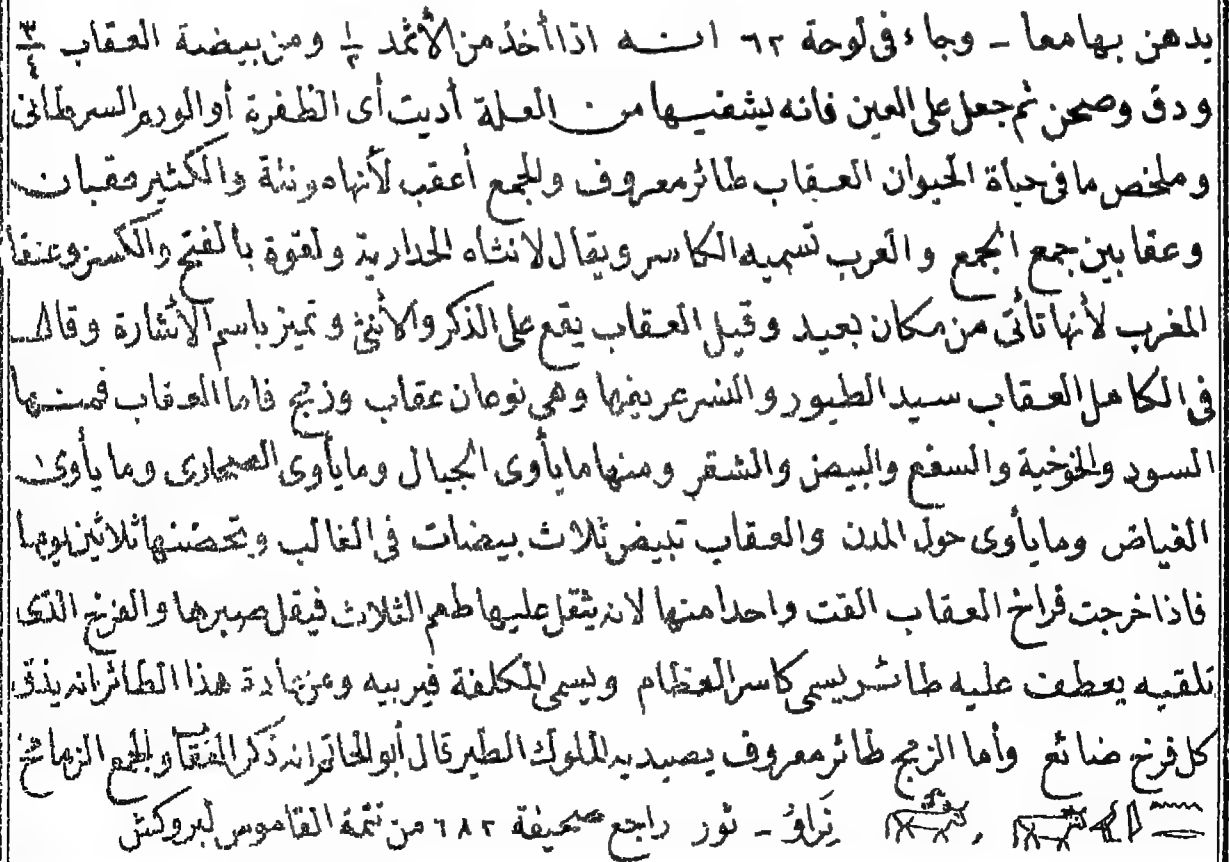 يدهن بها معا - وجاء فى لوحة ٦٢ انه اذا أخذ من الأثمد ١/٢ ومن بيضة العقاب ٣/٤
ودق وصحن ثم جعل على العين فانه يشفيها من العلة أديت أى الظفرة أو الورم السرطانى
وملخص ما فى حياة الحيوان العقاب طائر معروف والجمع أعقب لأنها مونثة والكثير عقبان
وعقابين جمع الجمع والعرب تسميه الكاسر ويقال لانثاه الحدارية ولقوة بالفتح والكسر وعنقا
المغرب لأنها تأتى من مكان بعيد وقيل العقاب يقع على الذكر والأنثى وتميز باسم الاشارة وقال
فى الكامل العقاب سيد الطيور والنسر عريفها وهى نوعان عقاب وزمج فاما العقاب فمنها
السود والخوخية والسفع والبيض والشقر ومنها ما يأوى الجبال وما يأوى الصحارى وما يأوى
الغياض وما يأوى حول المدن والعقاب تبيض ثلاث بيضات فى الغالب وتحضنها ثلاثين يوما
فاذا خرجت فراخ العقاب القت واحدا منها لانه يثقل عليها طعم الثلاث فيقل صبرها والفرخ الذى
تلقيه يعطف عليه طائر يسمى كاسر العظام ويسمى المكلفة فيربيه ومن عادة هذا الطائر انه يذق
كل فرخ ضائع وأما الزمج طائر معروف يصيد به الملوك الطير قال أبو الحاتم انه ذكر العقاب والجمع الزمامج
نراؤ - ثور راجع صحيفة ٦٨٢ من تتمة القاموس لبروكش